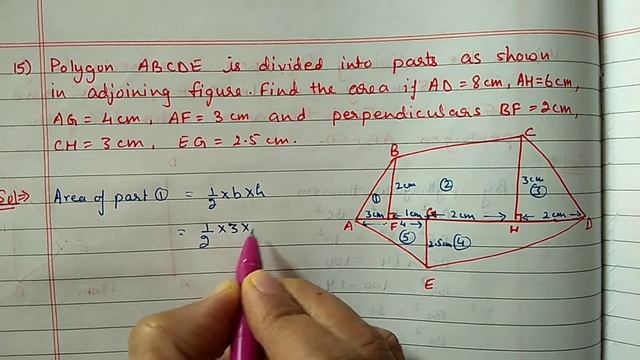 15) Polygon ABCDE is divided into parts as shown
in adjoining figure. Find the area if AD = 8cm, AH = 6cm,
AG = 4cm, AF = 3cm and perpendiculars BF = 2cm,
CH = 3cm, EG = 2.5cm.
Sol⇒ Area of part ① = 1/2 × b × h
= 1/2 × 3 ×
C
B
2cm
②
3cm
③
①
A
3cm
F
1cm
G
2cm
H
2cm
D
4
⑤
2.5cm
④
E